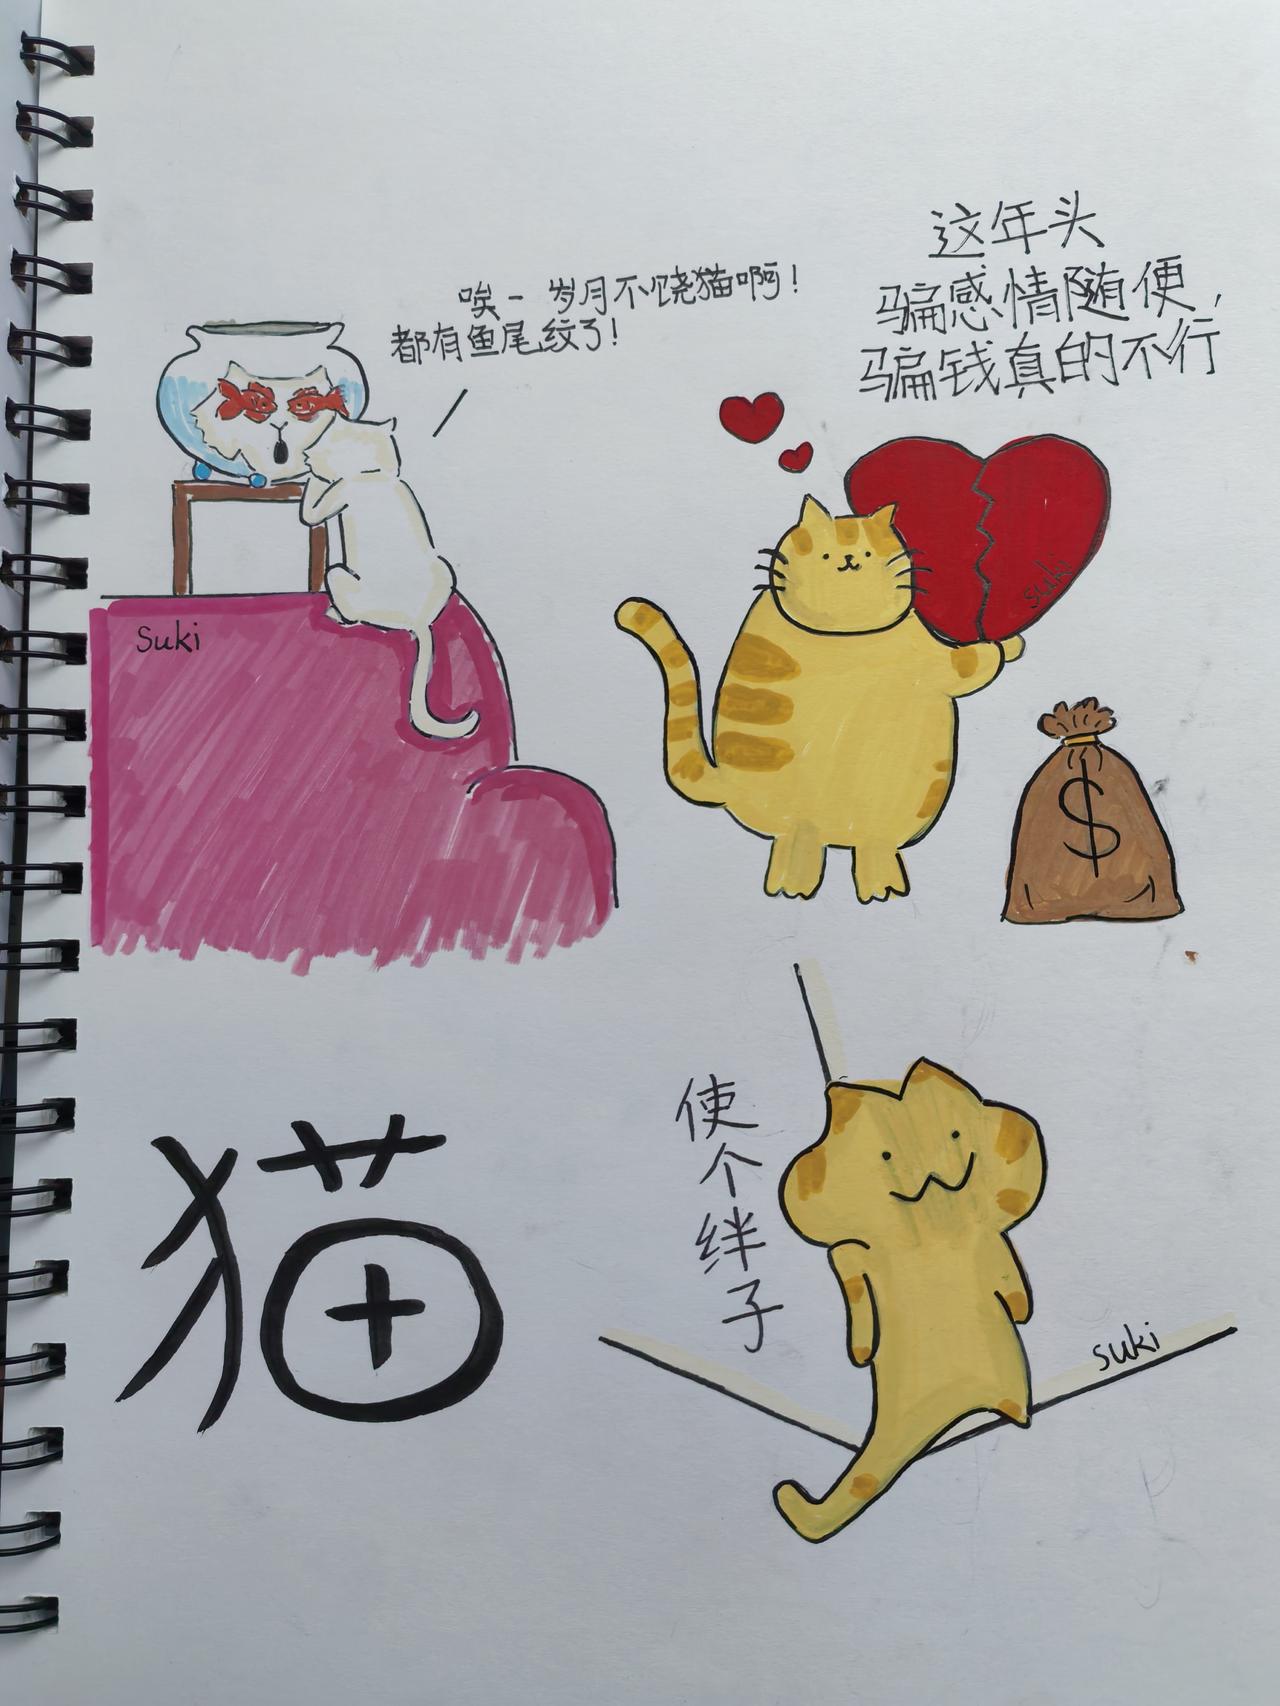 唉－岁月不饶猫啊！
都有鱼尾纹了！
Suki
这年头
骗感情随便，
骗钱真的不行
suki
$
猫
使个绊子
suki